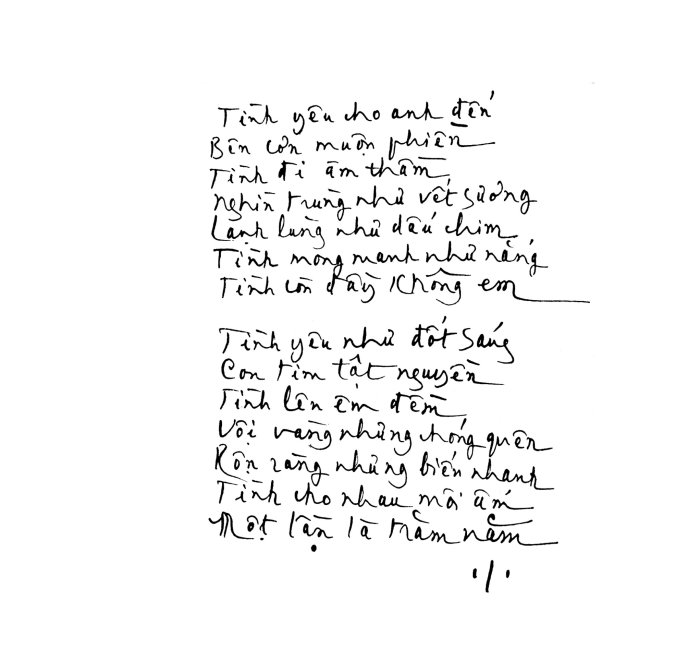 Tình yêu cho anh đến
Bên cơn muộn phiền
Tình đi âm thầm
Nghìn trùng như vết sương
Lạnh lùng như dấu chim
Tình mong manh như nắng
Tình còn đầy không em
Tình yêu như đốt sáng
Con tim tật nguyền
Tình lên êm đềm
Vội vàng nhưng chóng quên
Rộn ràng nhưng biến nhanh
Tình cho nhau môi ấm
Một lần là trăm năm